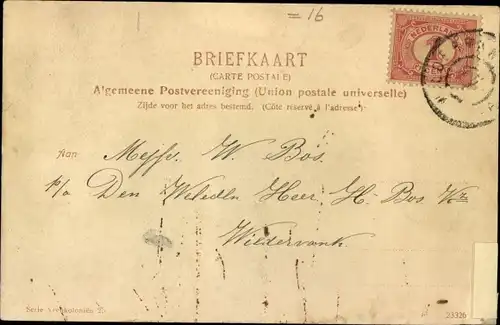 = 16
NEDERLAND
BRIEFKAART
(CARTE POSTALE)
Algemeene Postvereeniging (Union postale universelle)
Zijde voor het adres bestemd. (Côté réservé à l'adresse.)
Aan Mejfr. W. Bos.
p/a Den WelEdln Heer H. Bos Wz
Wildervank.
Serie
23326